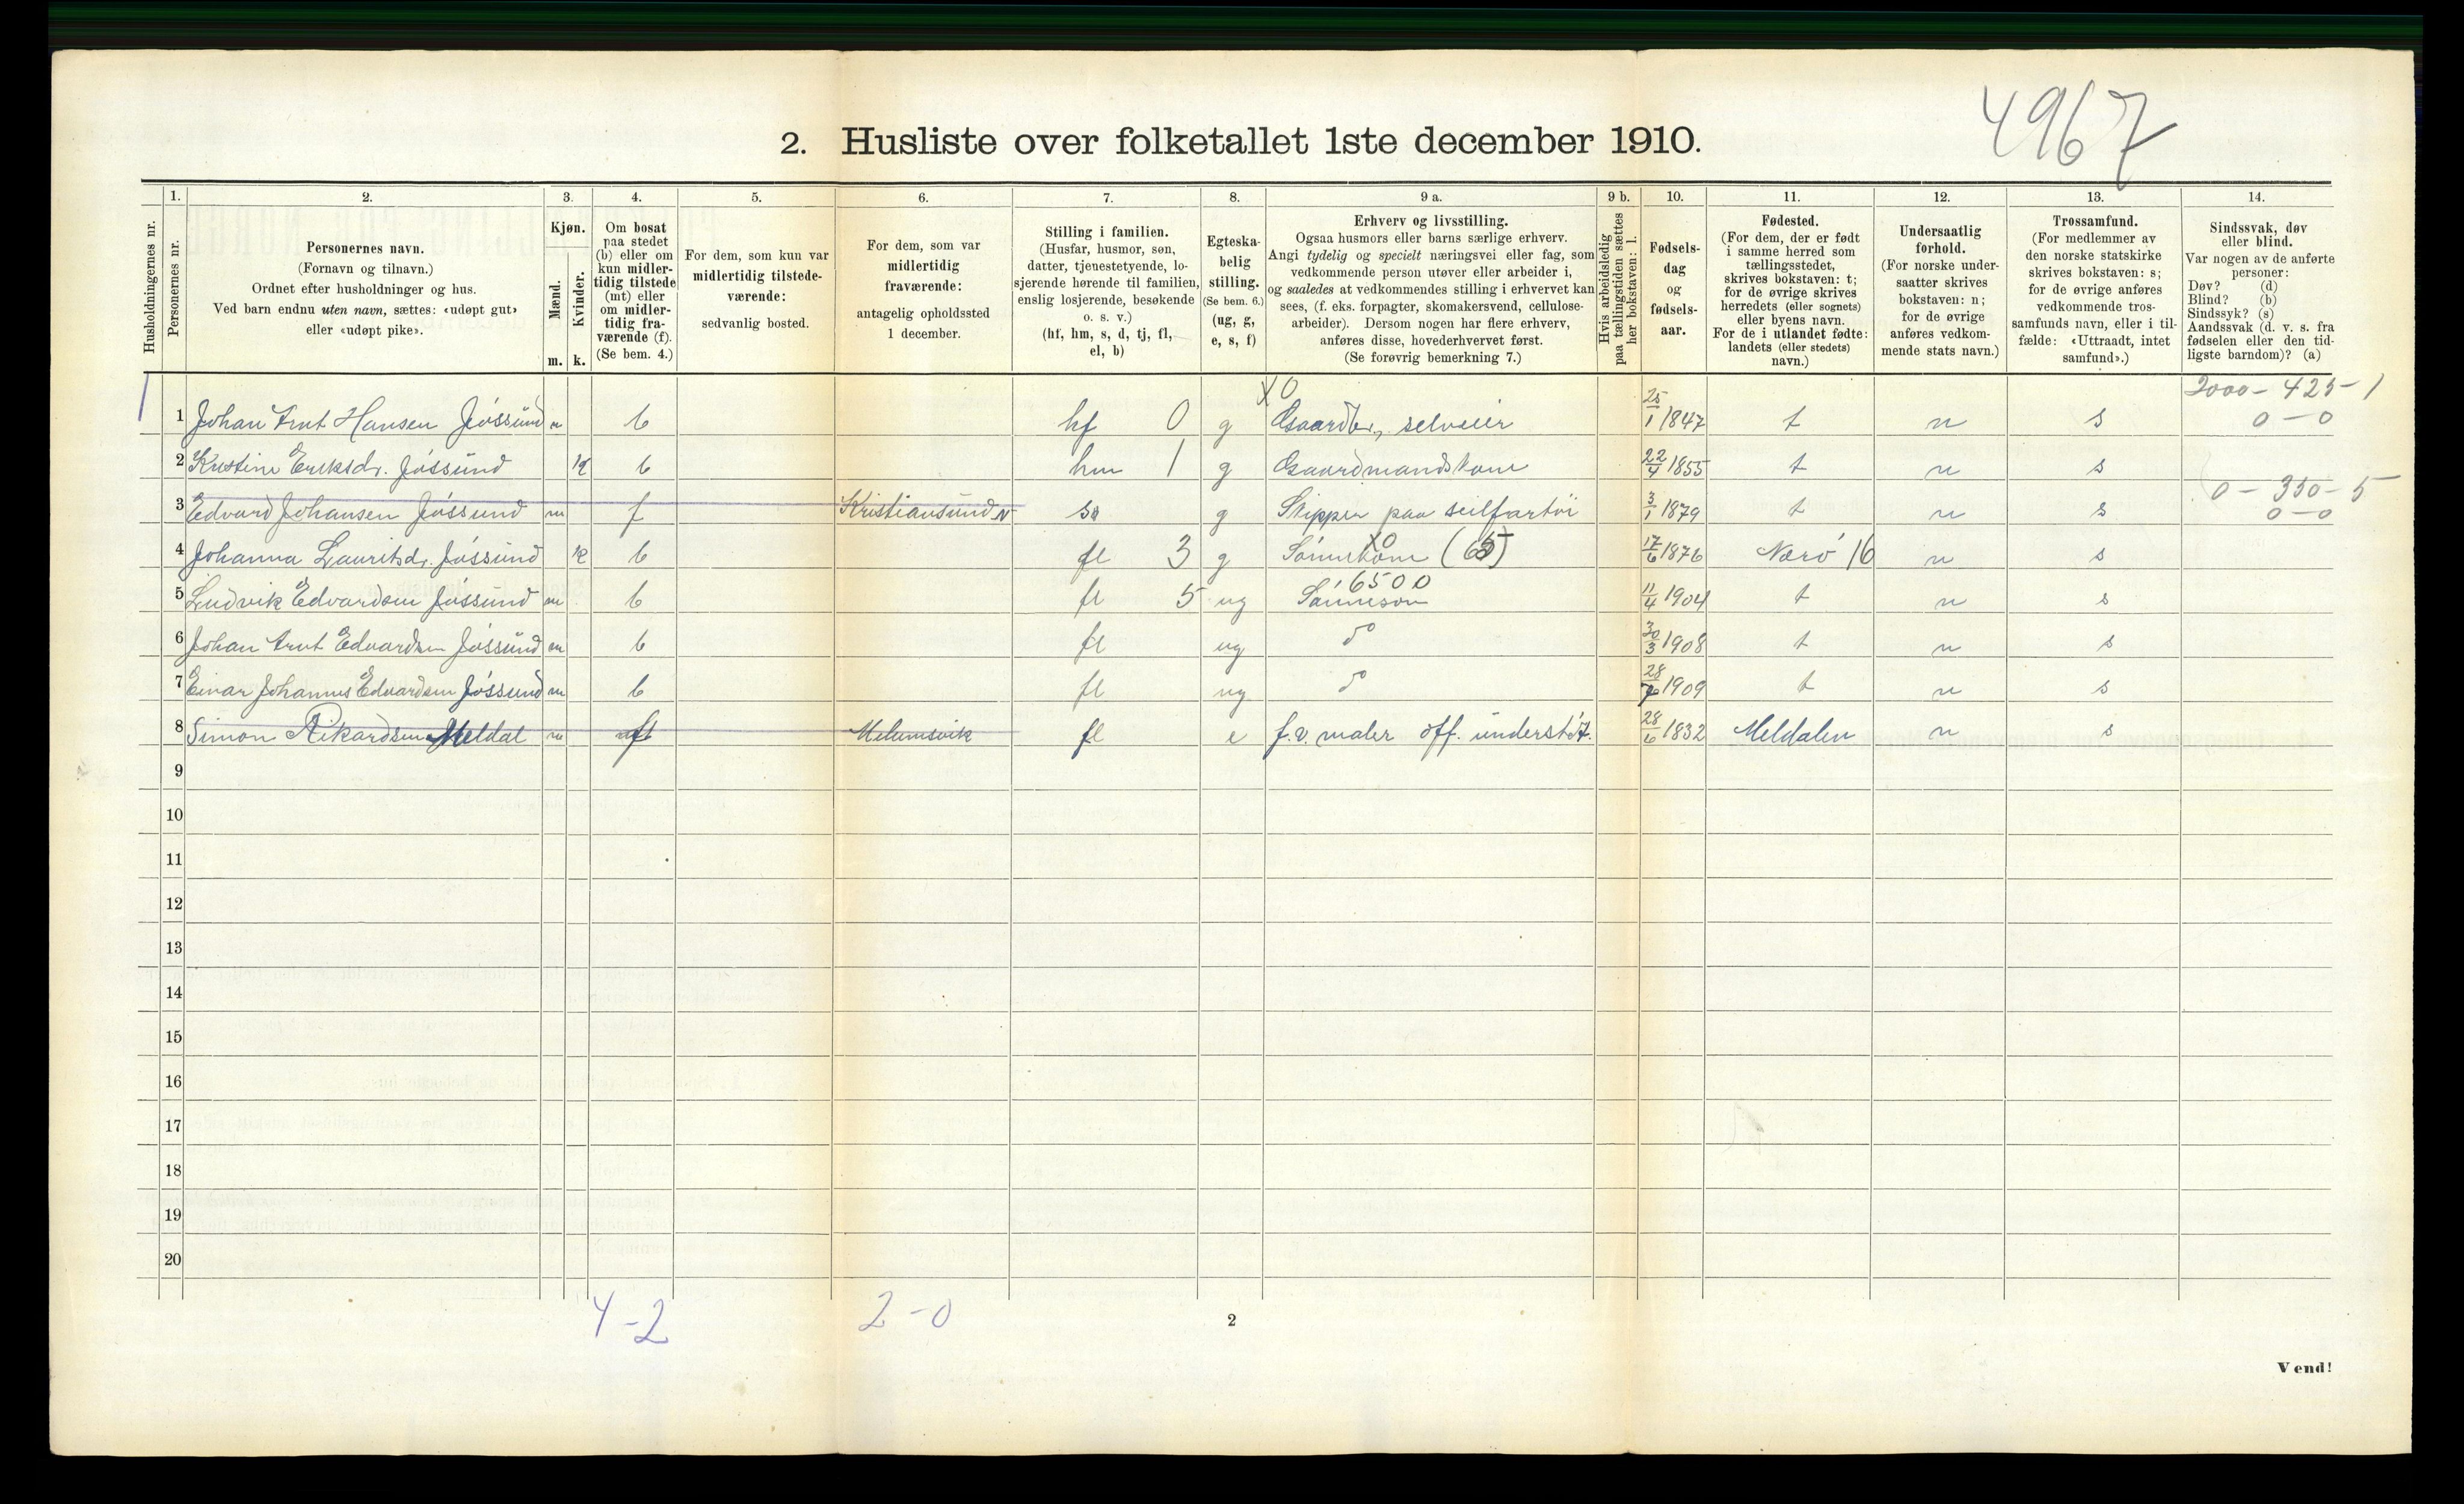 4967
2. Husliste over folketallet 1ste december 1910.
Husholdningernes nr.
1.
Personernes nr.
2.
Personernes navn.
(Fornavn og tilnavn.)
Ordnet efter husholdninger og hus.
Ved barn endnu uten navn, sættes: «udøpt gut»
eller «udøpt pike».
3.
Kjøn.
Mænd.
m.
Kvinder.
k.
4.
Om bosat
paa stedet
(b) eller om
kun midler-
tidig tilstede
(mt) eller
om midler-
tidig fra-
værende (f).
(Se bem. 4.)
5.
For dem, som kun var
midlertidig tilstede-
værende:
sedvanlig bosted.
6.
For dem, som var
midlertidig
fraværende:
antagelig opholdssted
1 december.
7.
Stilling i familien.
(Husfar, husmor, søn,
datter, tjenestetyende, lo-
sjerende hørende til familien,
enslig losjerende, besøkende
o. s. v.)
(hf, hm, s, d, tj, fl,
el, b)
8.
Egteska-
belig
stilling.
(Se bem. 6.)
(ug, g,
e, s, f)
9 a.
Erhverv og livsstilling.
Ogsaa husmors eller barns særlige erhverv.
Angi tydelig og specielt næringsvei eller fag, som
vedkommende person utøver eller arbeider i,
og saaledes at vedkommendes stilling i erhvervet kan
sees, (f. eks. forpagter, skomakersvend, cellulose-
arbeider). Dersom nogen har flere erhverv,
anføres disse, hovederhvervet først.
(Se forøvrig bemerkning 7.)
9 b.
Hvis arbeidsledig
paa tællingstiden sættes
her bokstaven: l.
10.
Fødsels-
dag
og
fødsels-
aar.
11.
Fødested.
(For dem, der er født
i samme herred som
tællingsstedet,
skrives bokstaven: t;
for de øvrige skrives
herredets (eller sognets)
eller byens navn.
For de i utlandet fødte:
landets (eller stedets)
navn.)
12.
Undersaatlig
forhold.
(For norske under-
saatter skrives
bokstaven: n;
for de øvrige
anføres vedkom-
mende stats navn.)
13.
Trossamfund.
(For medlemmer av
den norske statskirke
skrives bokstaven: s;
for de øvrige anføres
vedkommende tros-
samfunds navn, eller i til-
fælde: «Uttraadt, intet
samfund».)
14.
Sindssvak, døv
eller blind.
Var nogen av de anførte
personer:
Døv? (d)
Blind? (b)
Sindssyk? (s)
Aandssvak (d. v. s. fra
fødselen eller den tid-
ligste barndom)? (a)
X0 2000 - 425 - 1
1 1 Johan Arnt Hansen Jøssund m b hf 0 g Gaardbr., selveier 25/1 1847 t n s 0 - 0
2 Kristine Eriksdr. Jøssund k b hm 1 g Gaardmandskone 22/4 1855 t n s
0 - 350 - 5
3 Edvard Johansen Jøssund m f Kristiansund N s g Skipper paa seilfartøi 3/1 1879 t n s 0 - 0
X0
4 Johanna Lauritsdr. Jøssund k b fl 3 g Sønnekone (65) 17/6 1876 Nærø 16 n s
6500
5 Ludvik Edvardsen Jøssund m b fl 5 ug Sønnesøn 11/4 1904 t n s
6 Johan Arnt Edvardsen Jøssund m b fl ug do 30/3 1908 t n s
7 Einar Johannes Edvardsen Jøssund m b fl ug do 28/7 1909 t n s
8 Simon Rikardsen Meldal m f Melumsvik fl e f.v. maler off. underst. 28/6 1832 Meldalen n s
9
10
11
12
13
14
15
16
17
18
19
20
4-2 2-0
2
Vend!